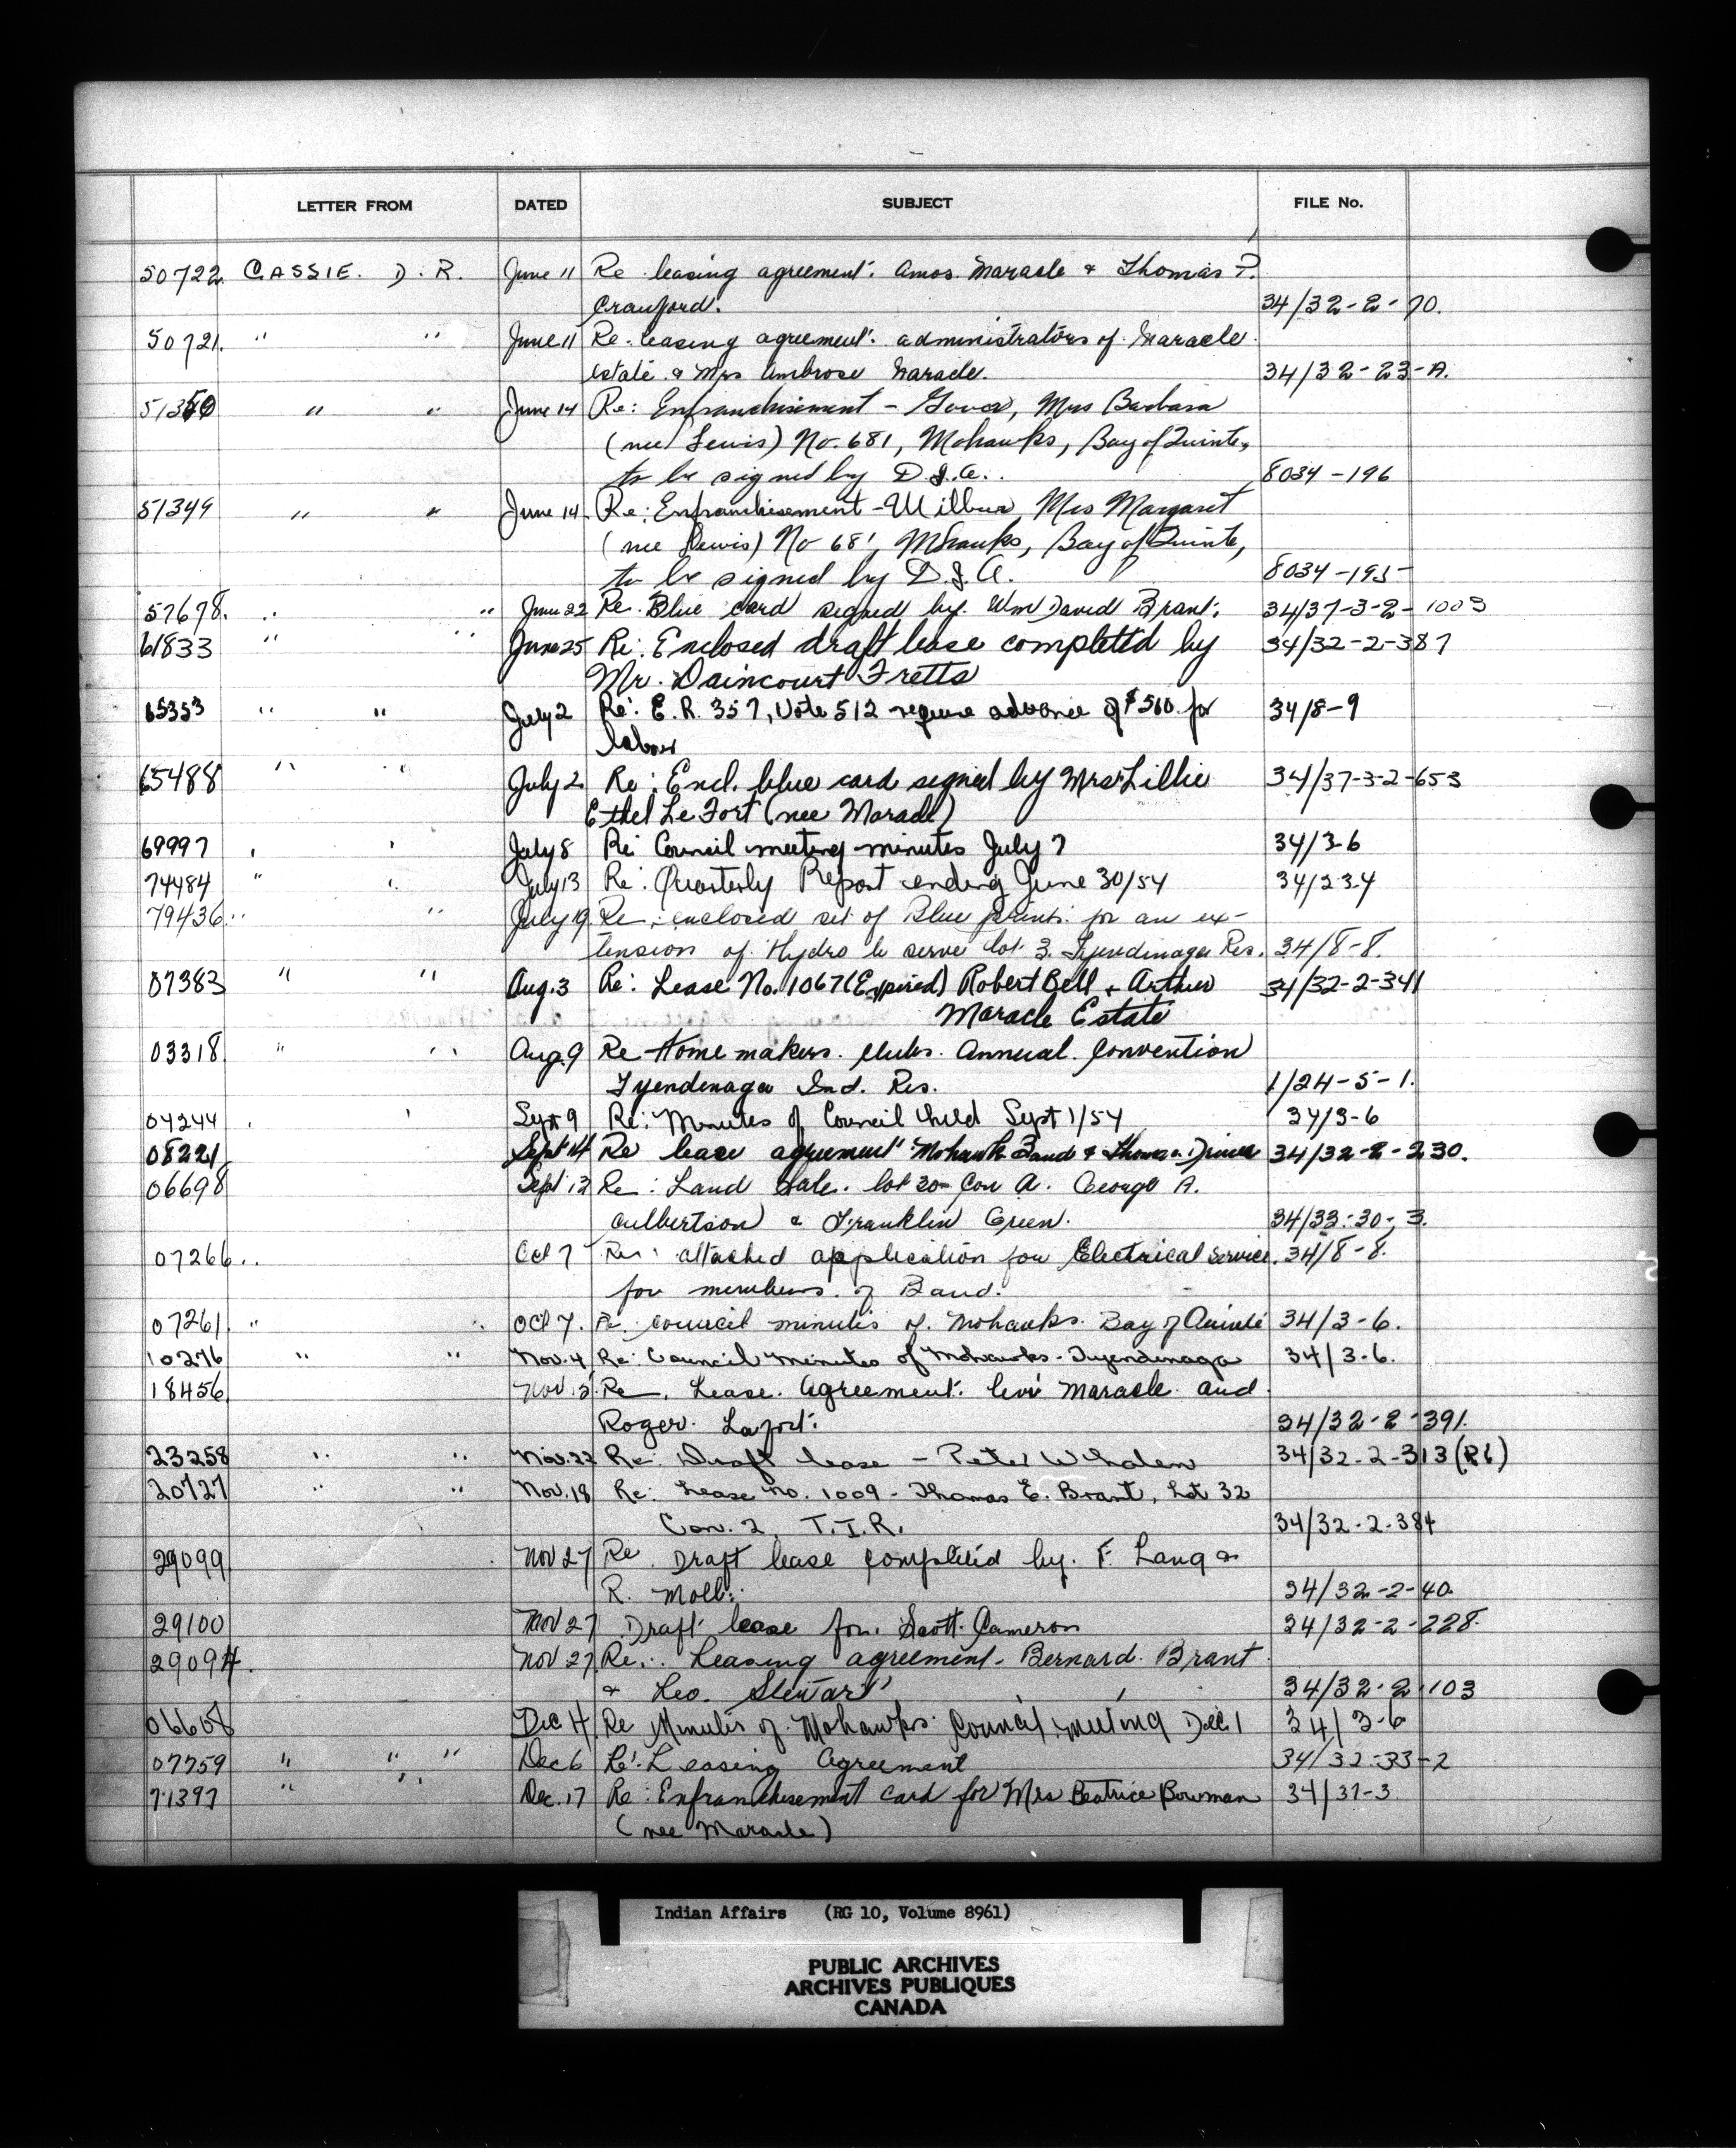 LETTER FROM DATED SUBJECT FILE No.
50722 CASSIE. D. R. June 11 Re leasing agreement: Amos Maracle & Thomas P.
Crawford. 34/32-2-70.
50721. " " June 11 Re leasing agreement: administrators of Maracle
estate & Mrs Ambrose Maracle. 34/32-23-A.
51350 " " June 14 Re: Enfranchisement - Mrs Barbara
(nee Lewis) No. 681, Mohawks, Bay of Quinte,
to be signed by D.I.A. 8034-196
51349 " " June 14 Re: Enfranchisement - Wilbur, Mrs Margaret
(nee Lewis) No 681, Mohawks, Bay of Quinte,
to be signed by D.I.A. 8034-195
57678. " " June 22 Re. Blue card signed by Wm David Brant. 34/37-3-2-1003
61833 " " June 25 Re: Enclosed draft lease completed by 34/32-2-387
Mr. Daincourt Fretts
65353 " " July 2 Re: E.R. 357, Vote 512 require advance of $560. for 34/8-9
labour
65488 " " July 2 Re: Encl. blue card signed by Mrs Lillie 34/37-3-2-653
Ethel Le Fort (nee Maracle)
69997 " " July 8 Re: Council meeting minutes July 7 34/3-6
74484 " " July 13 Re: Quarterly Report ending June 30/54 34/23-4
79436 " " July 19 Re: enclosed set of Blue prints for an ex-
tension of Hydro to serve lot 3. Tyendinaga Res. 34/8-8.
07383 " " Aug. 3 Re: Lease No. 1067 (Expired) Robert Bell + Arthur 34/32-2-341
Maracle Estate
03318 " " Aug. 9 Re Homemakers. Clubs. Annual. Convention
Tyendinaga Ind. Res. 1/24-5-1.
04244 " " Sept 9 Re: Minutes of Council held Sept 1/54 34/3-6
08221 Sept 14 Re lease agreement Mohawk Band & Thomas 34/32-2-230.
06698 Sept 13 Re: Land Sale. lot 30 Con A. George A.
Culbertson & Franklin Green. 34/33-30-3.
07266 " Oct 7 Re: attached application for Electrical Service. 34/8-8.
for members of Band.
07261. " " Oct 7. Re. council minutes of Mohawks Bay of Quinte 34/3-6.
10276 " " Nov. 4 Re: Council Minutes of Mohawks - Tyendinaga 34/3-6.
18456 Nov 15. Re. Lease. Agreement: Levi Maracle and
Roger. Lafort. 34/32-2-391.
23258 " " Nov. 22 Re: Draft lease - Peter Whalen 34/32-2-313 (Pt)
20727 " " Nov. 18 Re: Lease No. 1009 - Thomas E. Brant, Lot 32
Con. 2, T.I.R. 34/32-2-384
29099 Nov 27 Re. Draft lease completed by F. Lang &
R. Moll. 34/32-2-40
29100 Nov 27 Draft lease for. Scott. Cameron 34/32-2-228.
29094. Nov 27 Re: Leasing agreement - Bernard Brant
& Leo. Stewart 34/32-2-103
06608 Dec 4 Re Minutes of Mohawks Council meeting Dec. 1 34/3-6
07759 " " " Dec 6 Re: Leasing Agreement 34/32-33-2
71397 " " Dec. 17 Re: Enfranchisement card for Mrs Beatrice Bowman 34/37-3
(nee Maracle)
Indian Affairs (RG 10, Volume 8961)
PUBLIC ARCHIVES
ARCHIVES PUBLIQUES
CANADA